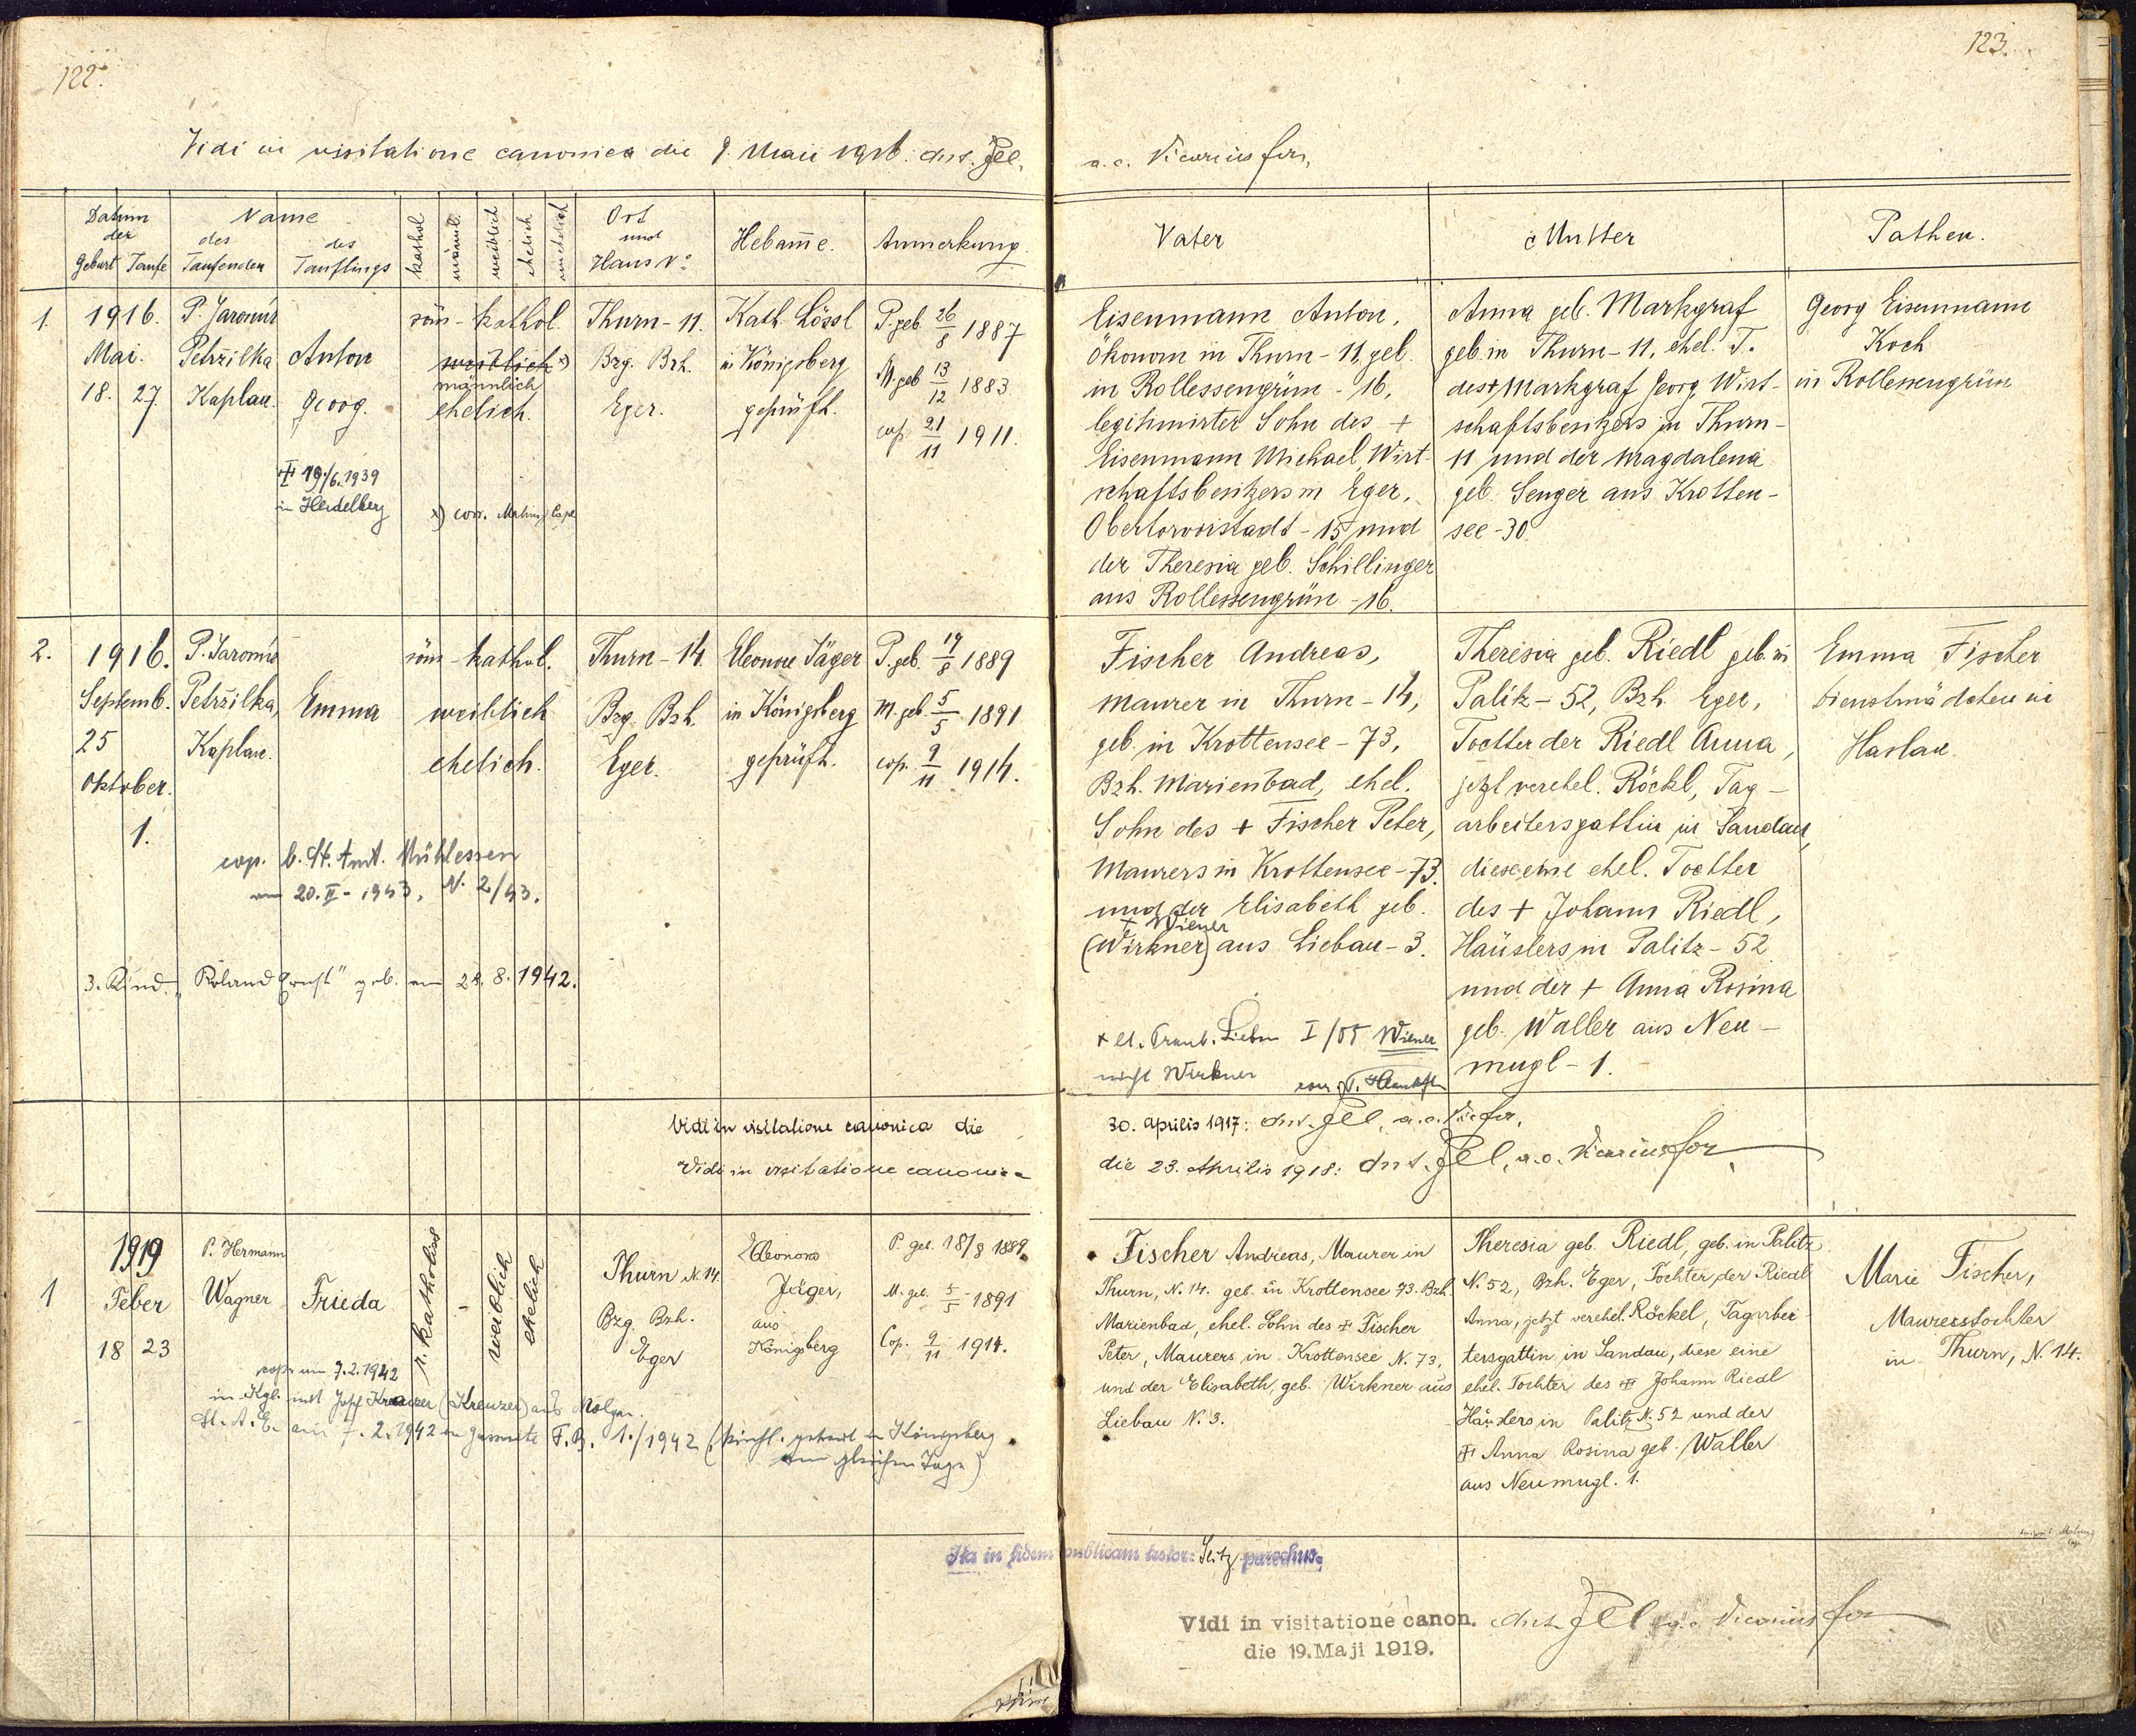 122.
Vidi in visitatione canonica die 9. Maii 1916. Ant. Jel,
Datum der
Geburt Taufe
Name
des Taufenden
des Täuflings
kathol
männl.
weiblich
ehelich
unehelich
Ort und Haus No
Hebam̄e.
Anmerkung.
1.
1916.
Mai.
18. 27.
P. Jaromír
Petržilka
Kaplan.
Anton
Georg.
röm-kathol.
weiblich x)
männlich
ehelich.
Thurn-11.
Bzg. Bzh.
Eger.
Kath. Lössl
in Königsberg
geprüft.
P. geb. 26/8 1887
M. geb 13/12 1883
cop. 21/11 1911.
+ 19/6.1939
in Heidelberg
x) corr.
2.
1916.
Septemb.
25
Oktober.
1.
P. Jaromír
Petržilka,
Kaplan.
Emma
röm-kathol.
weiblich
ehelich.
Thurn-14.
Bzg. Bzh.
Eger.
Eleonore Jäger
in Königsberg
geprüft.
P. geb. 19/8 1889
M. geb. 5/5 1891
cop. 9/11 1914.
cop. b. St. Amt. Mühlessen
am 20.II-1943, N. 2/43.
3. Kind. "Roland Ernst" geb. am 28.8.1942.
Vidi in visitatione canonica die
Vidi in visitatione canonica
1
1919
Feber
18 23
P. Hermann
Wagner
Frieda
r. katholisch
-
weiblich
ehelich
Thurn N. 14.
Bzg. Bzh.
Eger
Eleonora
Jäger,
aus
Königsberg
P. geb. 18/8 1889.
M. geb. 5/5 1891
Cop. 9/11 1914.
cop. am 7.2.1942
in Kgl. mit Josef (Kreuzer) aus
St. A. E. am 7.2.1942 F. B. 1./1942 (kirchl. getraut in Königsberg
am gleichen Tage)
123.
a.c. Vicarius for,
Vater
Mutter
Pathen.
Eisenmann Anton,
Ökonom in Thurn-11, geb.
in Rollessengrün-16,
legitimirter Sohn des +
Eisenmann Michael, Wirt-
schaftsbesitzers in Eger,
Obertorvorstadt-15 und
der Theresia geb. Schillinger
aus Rollessengrün-16.
Anna geb. Markgraf
geb. in Thurn-11, ehel. T.
des + Markgraf Georg, Wirt-
schaftsbesitzers in Thurn-
11 und der Magdalena
geb. Senger aus Krotten-
see-30.
Georg Eisenmann
Koch
in Rollessengrün
Fischer Andreas,
Maurer in Thurn-14,
geb. in Krottensee-73,
Bzh. Marienbad, ehel.
Sohn des + Fischer Peter,
Maurers in Krottensee-73.
und der Elisabeth geb.
+ Wiener
(Wirkner) aus Liebau-3.
Wiener
nicht Wirkner
Theresia geb. Riedl geb. in
Palitz-52, Bzh. Eger,
Tochter der Riedl Anna,
jetzt verehel. Röckl, Tag-
arbeitersgattin in Sandau,
diese eine ehel. Tochter
des + Johann Riedl,
Häuslers in Palitz-52
und der + Anna Rosina
geb. Waller aus Neu-
mugl-1.
Emma Fischer
Dienstmädchen in
Haslau.
30. Aprilis 1917: Ant. Jel, a.c. Vic for,
die 23. Aprilis 1918: Ant. Jel, a.c. Vicarius for
Fischer Andreas, Maurer in
Thurn, N. 14. geb. in Krottensee 73. Bzh.
Marienbad, ehel. Sohn des + Fischer
Peter, Maurers in Krottensee N. 73,
und der Elisabeth, geb. Wirkner aus
Liebau N. 3.
Theresia geb. Riedl, geb. in Palitz
N. 52, Bzh. Eger, Tochter der Riedl
Anna, jetzt verehel. Röckel, Tagarbei-
tersgattin in Sandau, diese eine
ehel. Tochter des + Johann Riedl
Häuslers in Palitz N. 52 und der
+ Anna Rosina geb. Waller
aus Neumugl. 1.
Marie Fischer,
Maurerstochter
in Thurn, N. 14.
Ita in fidem publicam testor: Seitz parochus.
Vidi in visitatione canon. Ant. Jel a.c. Vicarius for
die 19. Maji 1919.